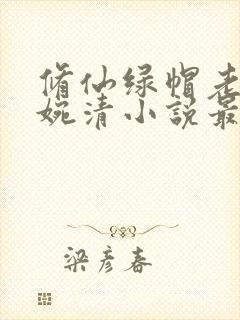 脩仙绿帽老
婉清小説最
梁彦春